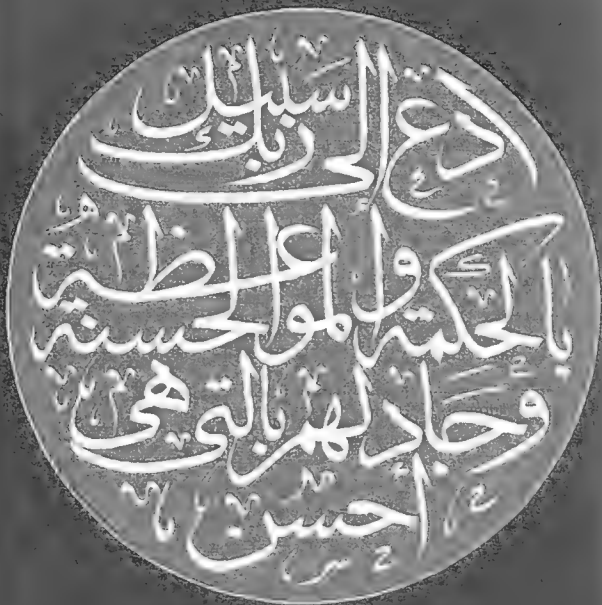 ادع إلى سبيل ربك
بالحكمة والموعظة الحسنة
وجادلهم بالتي هي
أحسن